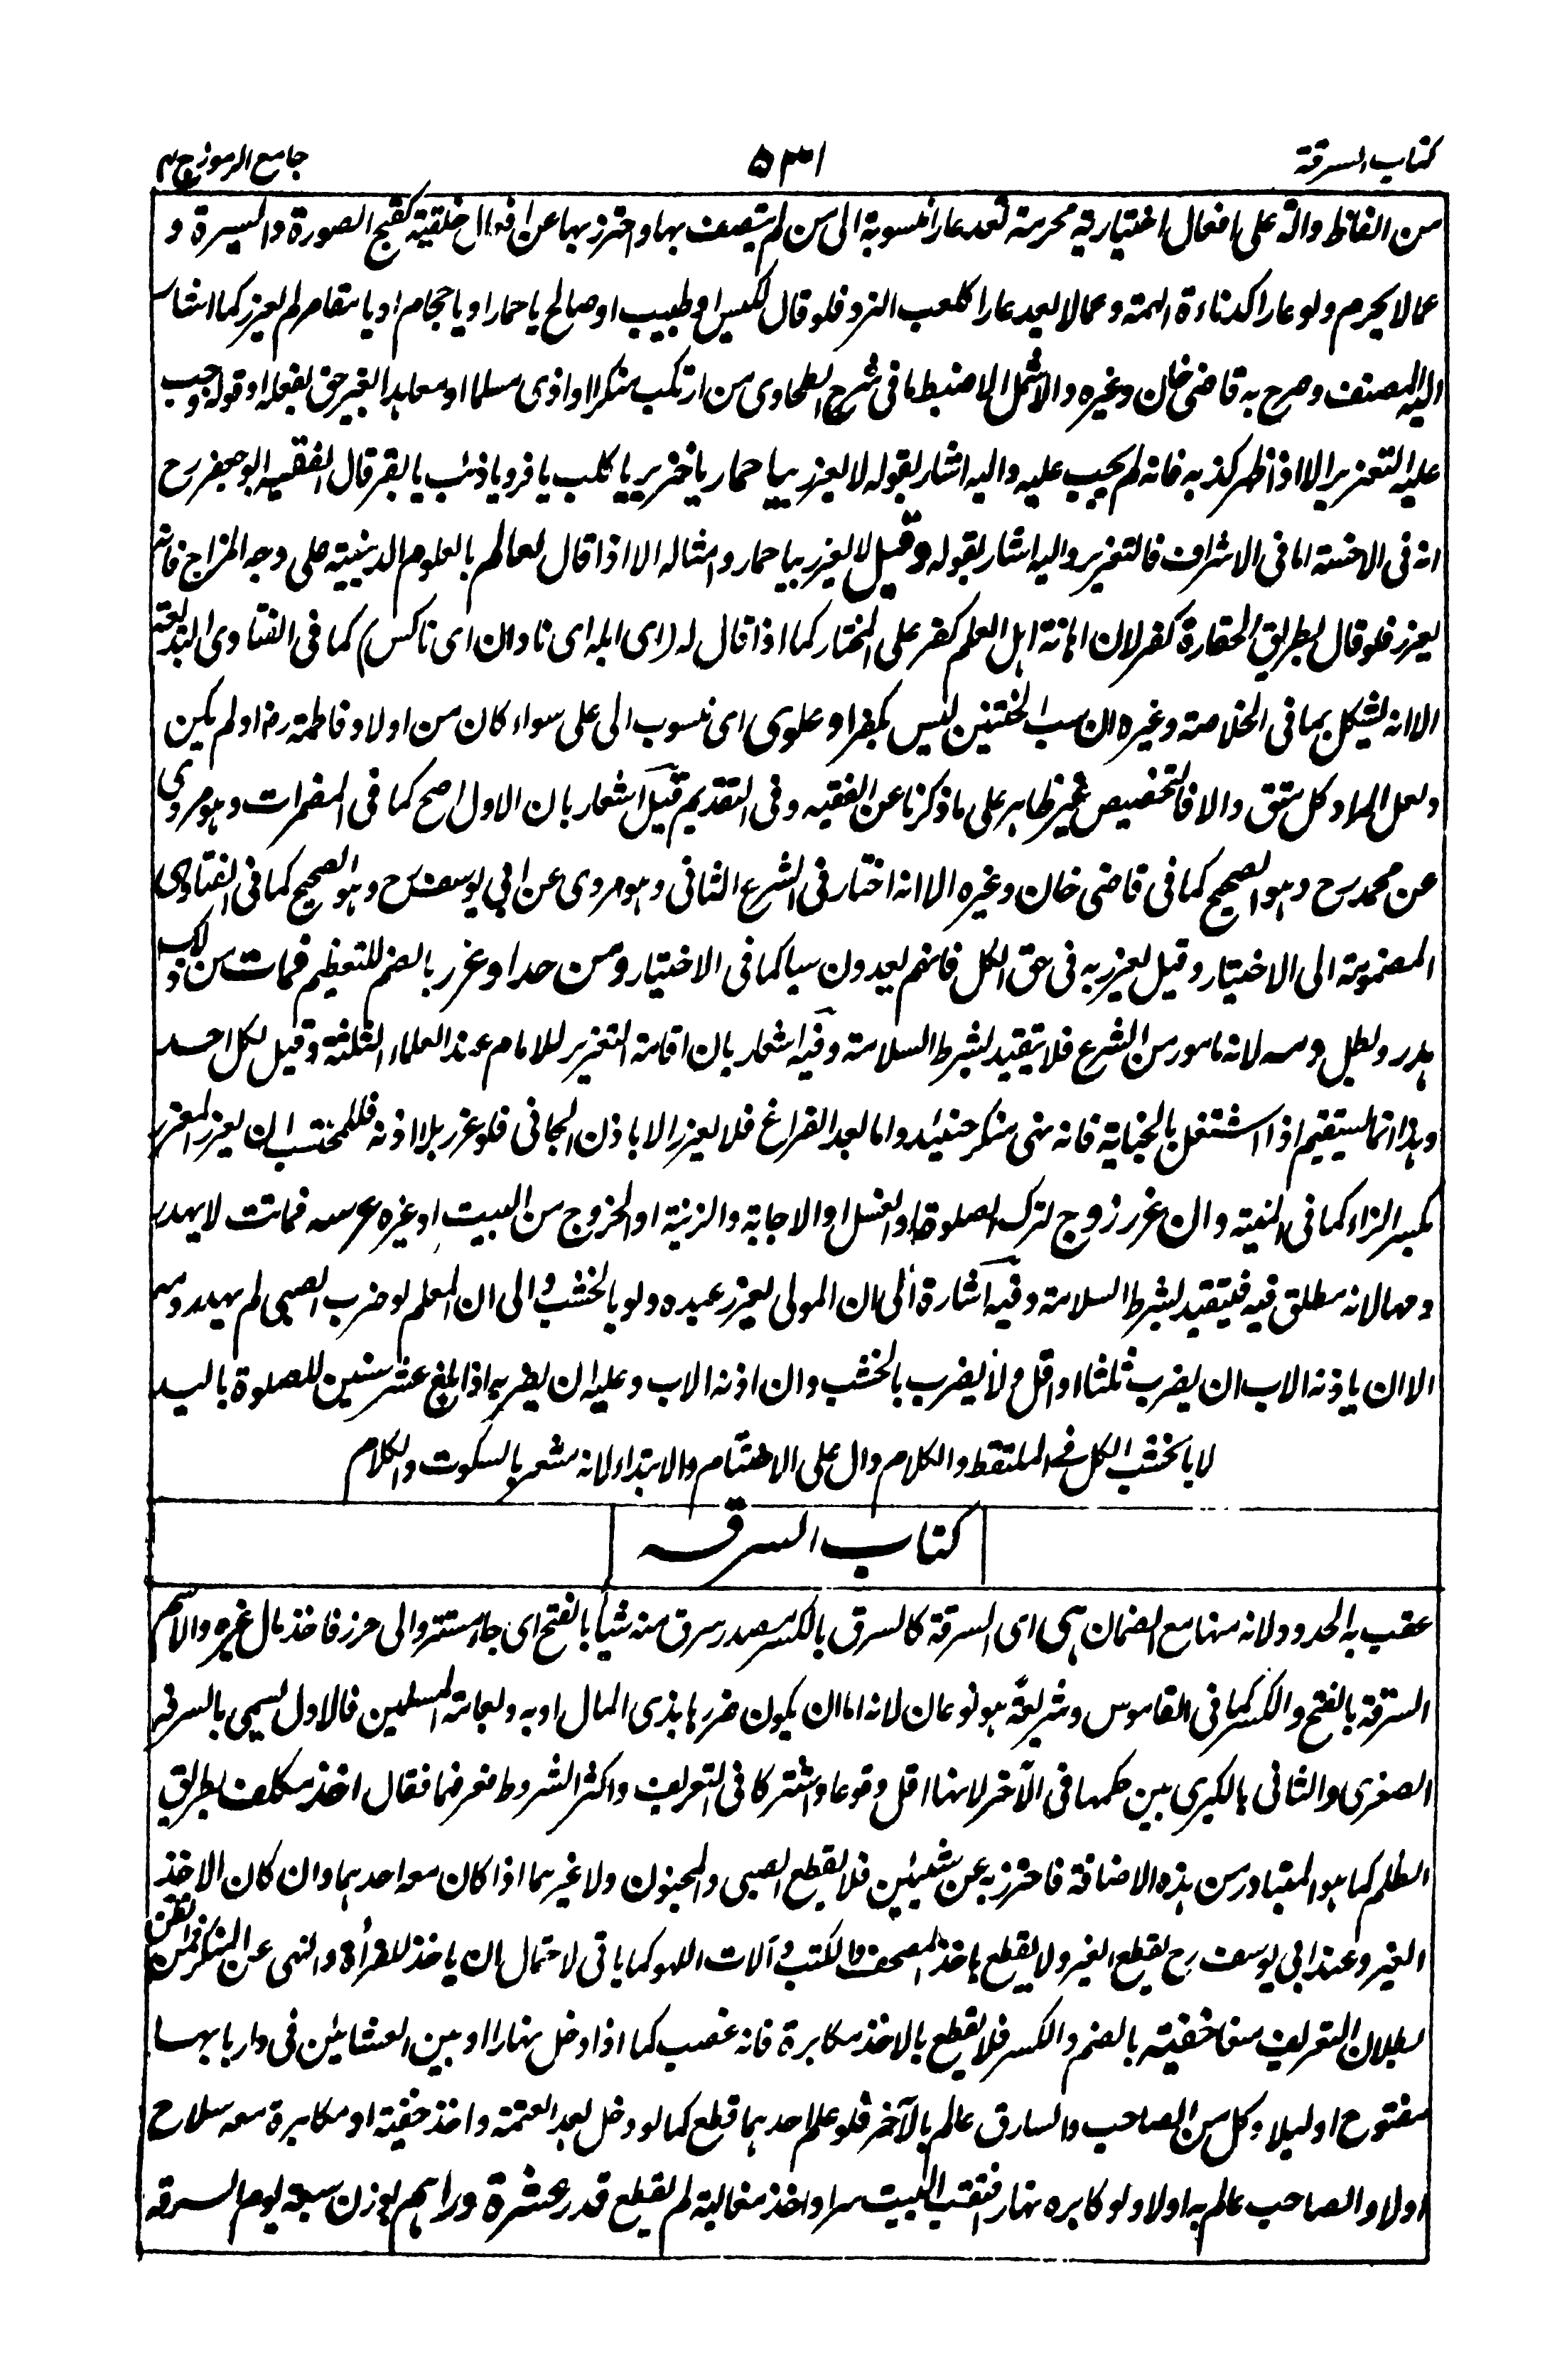 كتاب السرقة
٥٣١
جامع الرموز ج ٢
من الفاظ دالة على افعال اختيارية محرمة تعد عارا منسوبة الى من لم يتصف بها واحترز بها عن افعال خلقية كقبح الصورة والسيرة و
عما لا يحرم ولو عارا كدناءة الهمة وعما لا يعد عارا كلعب النرد فلو قال لكيس او طبيب او صالح يا حمار او يا حجام او يا مقامر لم يعزر كما اشار
اليه المصنف وصرح به قاضى خان وغيره والاشمل الاضبط ما فى شرح الطحاوى من ارتكب منكرا او اذى مسلما او معاهدا بغير حق بفعله او قوله وجب
عليه التعزير الا اذا ظهر كذبه فانه لم يجب عليه واليه اشار بقوله لا يعزر بيا حمار يا خنزير يا كلب يا قرد يا ذئب يا بقر قال الفقيه ابو جعفر رح
انه فى الاخسة اما فى الاشراف فالتعزير واليه اشار بقوله وقيل لا يعزر بيا حمار وامثاله الا اذا قال لعالم بالعلوم الدينية على وجه المزاح فانه
يعزر فلو قال بطريق الحقارة كفر لان اهانة اهل العلم كفر على المختار كما اذا قال له (اى ابله اى نادان اى ناكس) كما فى الفتاوى البديعة
الا انه يشكل بما فى الخلاصة وغيره ان سب الختنين ليس بكفر او علوى اى منسوب الى على سواء كان من اولاد فاطمة رض او لم يكن
ولعل المراد كل متق والا فالتخصيص غير ظاهر على ما ذكرنا عن الفقيه وفى التقديم قيل اشعار بان الاول اصح كما فى المضمرات وهو مروى
عن محمد رح وهو الصحيح كما فى قاضى خان وغيره الا انه اختار فى الشرع الثانى وهو مروى عن ابى يوسف رح وهو الصحيح كما فى الفتاوى
المضمومة الى الاختيار وقيل يعزر به فى حق الكل فانهم يعدون سبا كما فى الاختيار ومن حد او عزر بالضم للتعظيم فمات من ذلك
هدر وبطل دمه لانه مامور من الشرع فلا يتقيد بشرط السلامة وفيه اشعار بان اقامة التعزير للامام عند العلماء الثلثة وقيل لكل احد
وهذا انما يستقيم اذا اشتغل بالجناية فانه نهى منكر حينئذ واما بعد الفراغ فلا يعزر الا باذن الجانى فلو عزر بلا اذنه فللمحتسب ان يعزر المعزر
بكسر الزاء كما فى المنية وان عزر زوج لترك الصلوة او الغسل او الاجابة والزينة او الخروج من البيت او غيره عرسه فماتت لا يهدر
دمها لانه مطلق فيه فيتقيد بشرط السلامة وفيه اشارة الى ان المولى يعزر عبده ولو بالخشب والى ان المعلم لو ضرب الصبى لم يهدر دمه
الا ان ياذنه الاب ان يضرب ثلثا او اقل ولا يضرب بالخشب وان اذنه الاب وعليه ان يضربه اذا بلغ عشر سنين للصلوة باليد
لا بالخشب الكل فى الملتقط والكلام دال على الاختتام والابتداء لانه مشعر بالسكوت والكلام
كتاب السرقه
عقب به الحدود لانه منها مع الضمان هى اى السرقة كالسرق بالكسر مصدر سرق منه شيأ بالفتح اى جاء مستترا الى حرز فاخذ مال غيره والاسم
السرقة بالفتح والكسر كما فى القاموس وشريعة هو نوعان لانه اما ان يكون ضررها بذى المال او به وبعامة المسلمين فالاول يسمى بالسرقة
الصغرى والثانى بالكبرى بين حكمها فى الآخر لانها اقل وقوعا واشتركا فى التعريف واكثر الشروط فعرفهما فقال اخذ مكلف بطريق
الظلم كما هو المتبادر من هذه الاضافة فاحترز به عن شيئين فلا يقطع الصبى والمجنون ولا غيرهما اذا كان معه احدهما وان كان الاخذ
الغير وعند ابى يوسف رح يقطع الغير ولا يقطع باخذ المصحف والكتب وآلات اللهو كما ياتى لاحتمال ان ياخذ للقرأة والنهى عن المنكر فمن الظن
بطلان التعريف منعا خفية بالضم والكسر فلا يقطع بالاخذ مكابرة فانه غصب كما اذا دخل نهارا او بين العشائين فى دار بابها
مفتوح او ليلا وكل من الصاحب والسارق عالم بالآخر فلو علم احدهما قطع كما لو دخل بعد العتمة واخذ خفية او مكابرة معه سلاح
اولا والصاحب عالم به اولا ولو كابره نهارا فنقب البيت سرا واخذ مغالبة لم يقطع قدر عشرة دراهم بوزن سبعة يوم السرقه